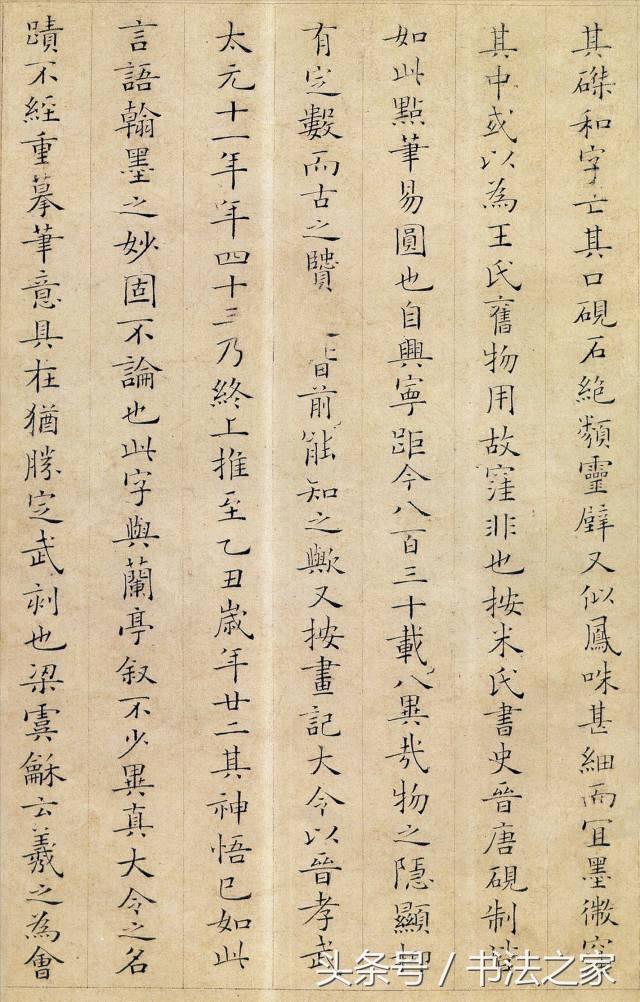 其磔和字亡其口硯石絶類靈璧又似鳳咮甚細而宜墨微窪
其中或以為王氏舊物用故窪非也按米氏書史晉唐硯制皆
如此點筆易圓也自興寧距今八百三十載八異哉物之隱顯抑
有定數而古之賢 昔前能知之歟又按畫記大令以晉孝武
太元十一年年四十三乃終上推至乙丑歲年廿二其神悟已如此
言語翰墨之妙固不論也此字與蘭亭叙不少異真大令之名
蹟不經重摹筆意具在猶勝定武刻也梁虞龢云羲之為會
头条号/书法之家